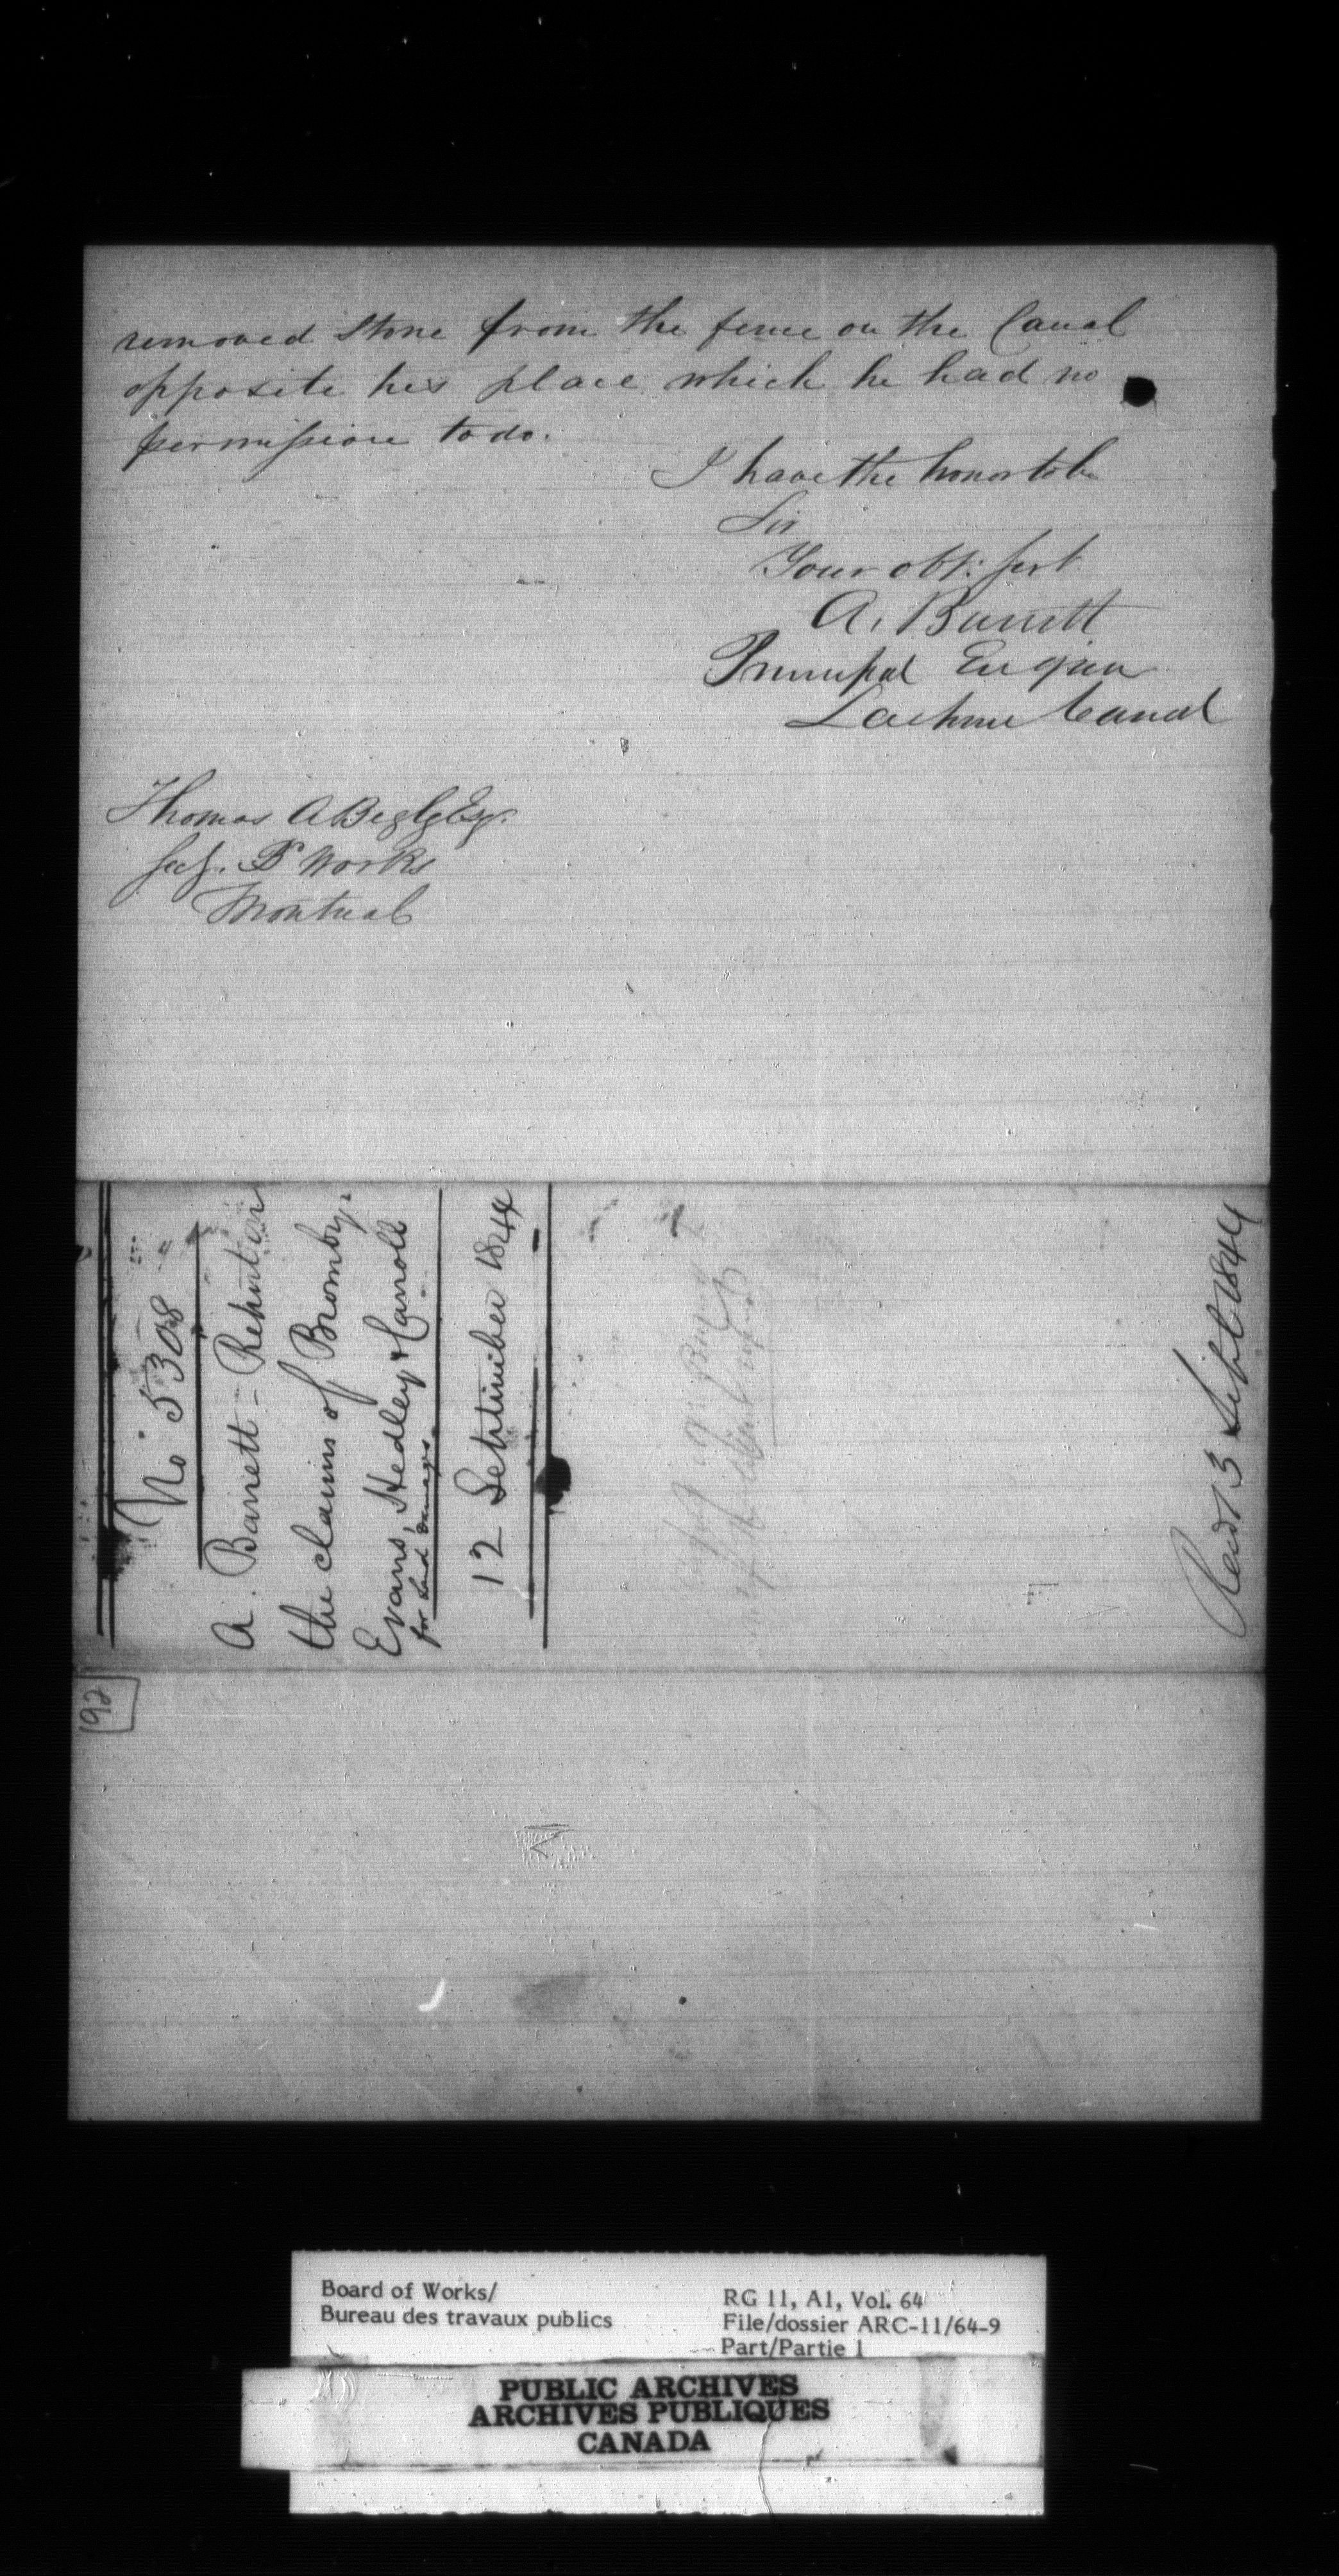 removed stone from the fence on the Canal
opposite his place which he had no
permission to do.
I have the honor to be
Sir
Your obt: Sert
A. Barrett
Principal Engineer
Lachine Canal
Thomas A Begly Esqr.
Secy. Bd Works
Montreal
No 5308
A. Barrett - Rehutton
the claims of Bromby,
Evans, Hedley & Carroll
for Land Damages
12 September 1844
Recd 13 Sept 1844
192
Board of Works/
Bureau des travaux publics
RG 11, A1, Vol. 64
File/dossier ARC-11/64-9
Part/Partie 1
PUBLIC ARCHIVES
ARCHIVES PUBLIQUES
CANADA